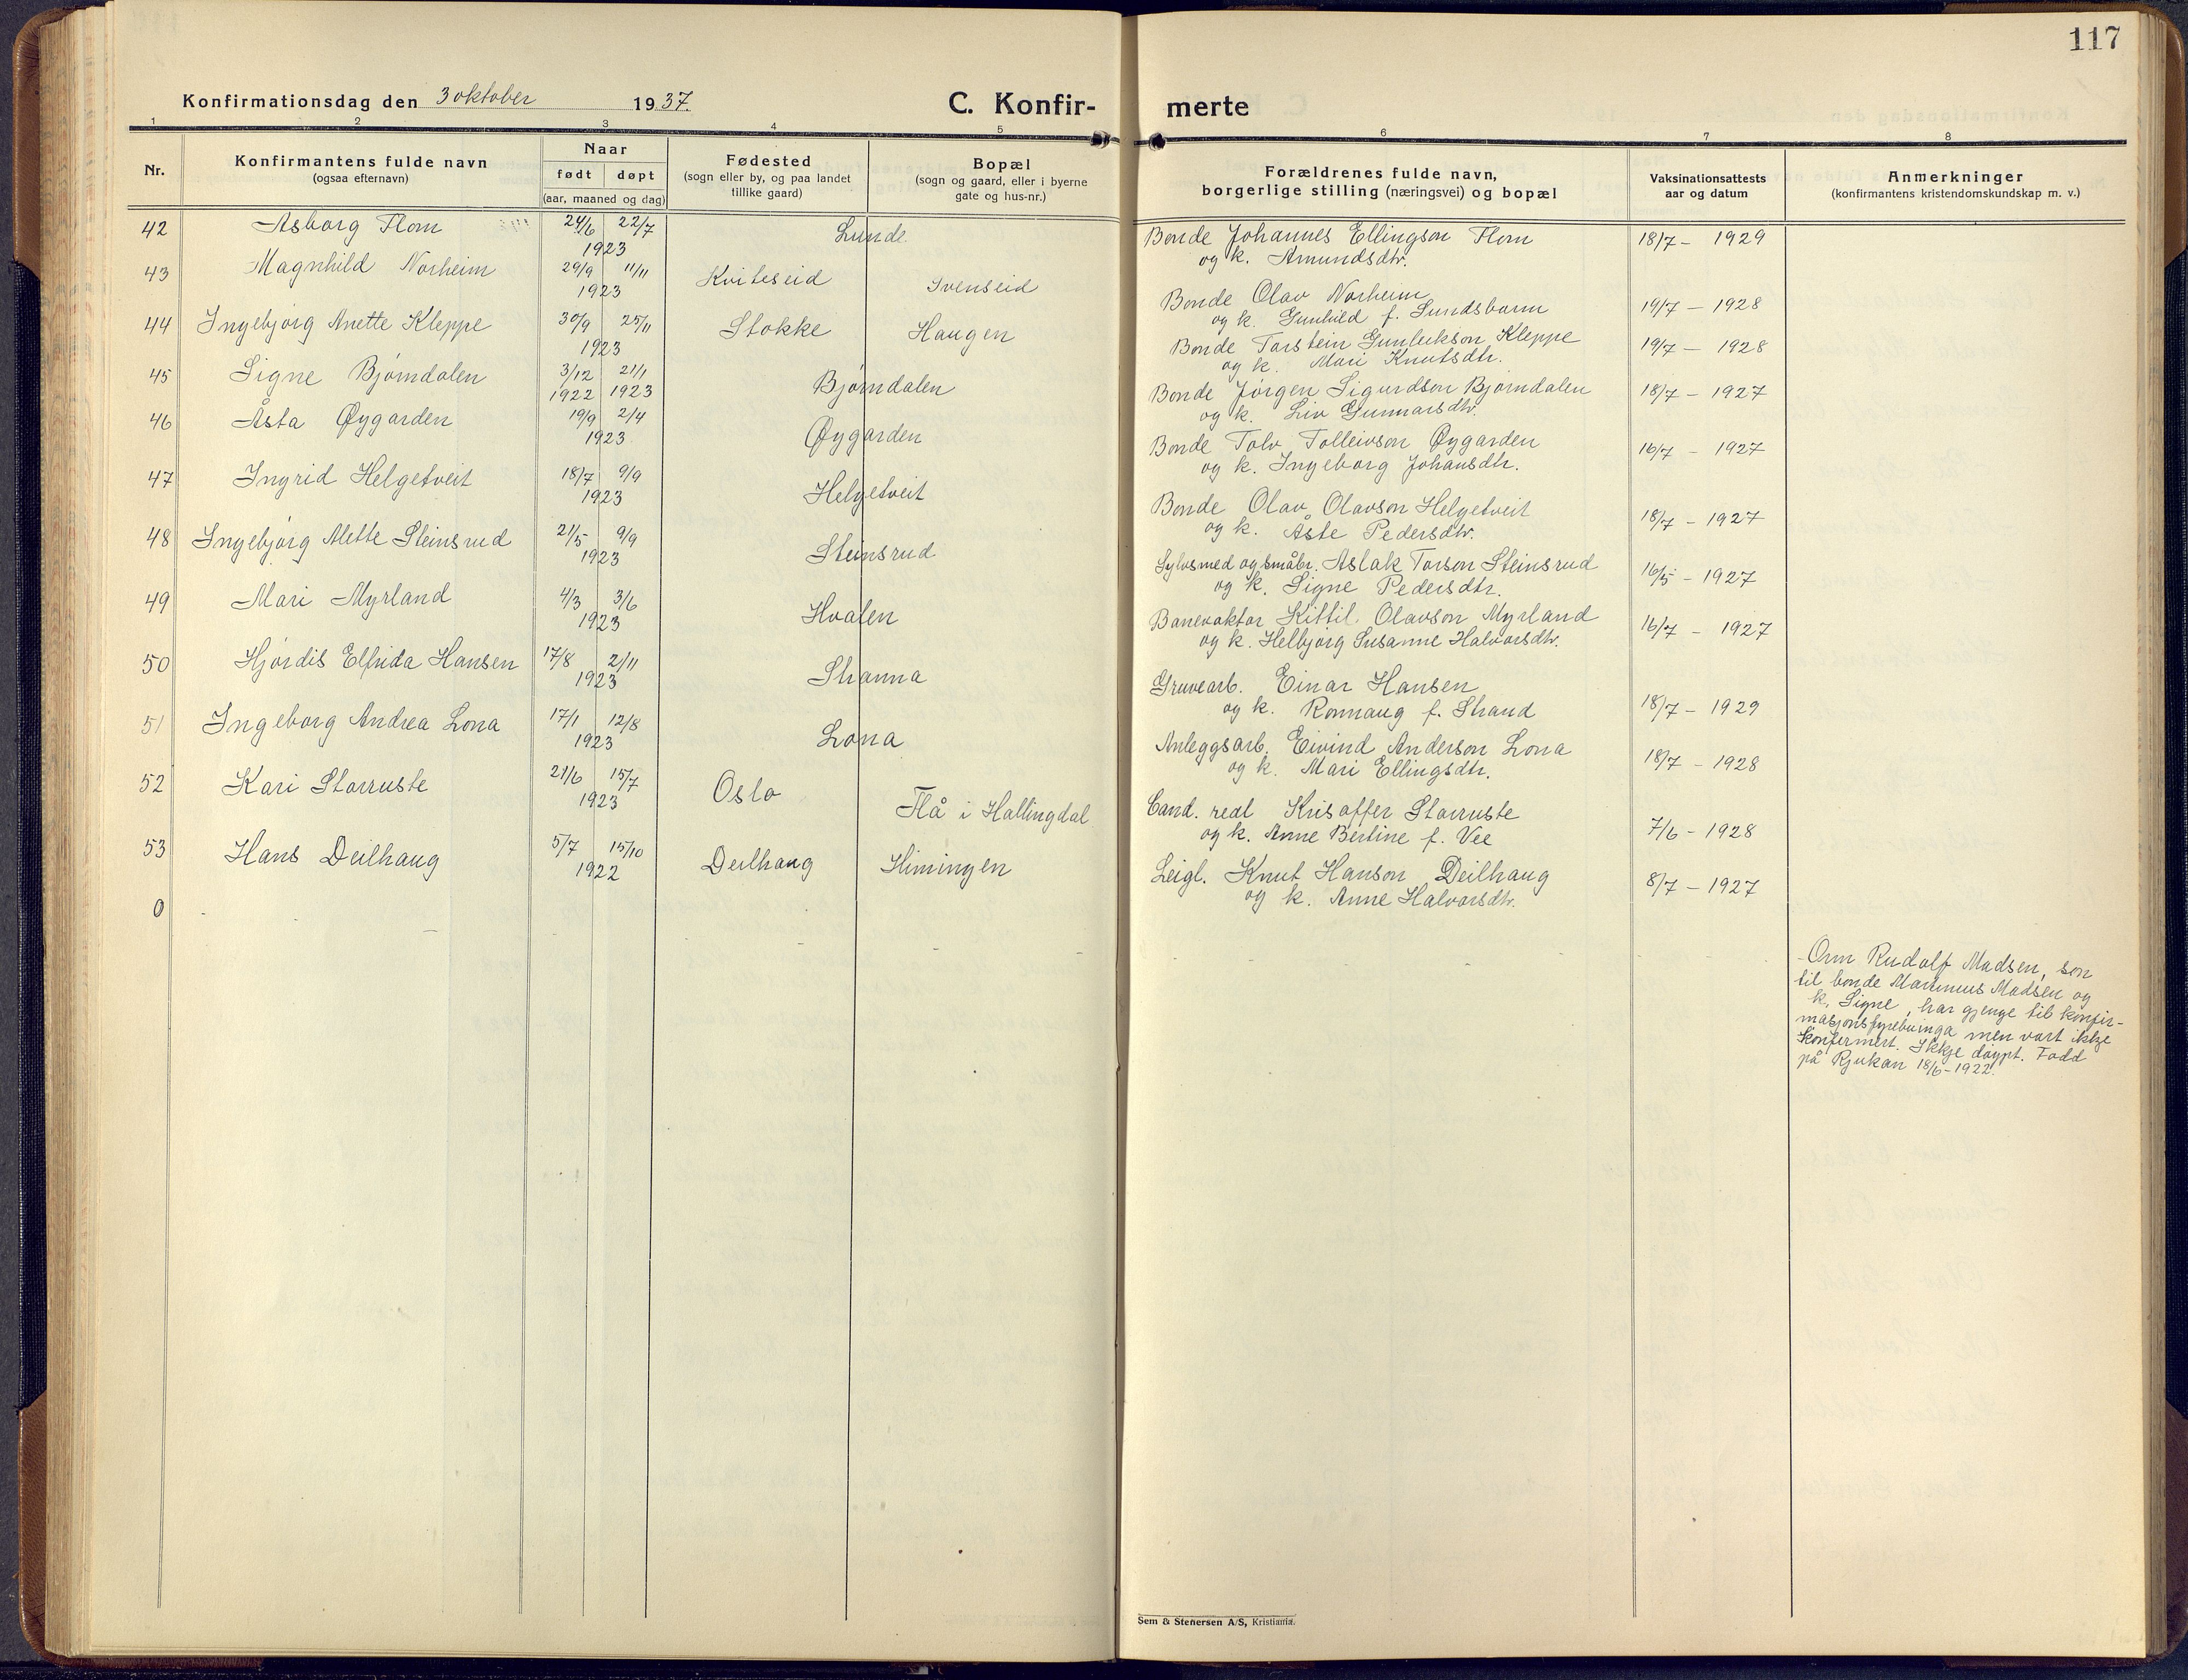 117
Konfirmationsdag den 3 oktober 1937.
C. Konfir-
merte
1 2 3 4 5 6 7 8
Nr.
Konfirmantens fulde navn
(ogsaa efternavn)
Naar
født døpt
(aar, maaned og dag)
Fødested
(sogn eller by, og paa landet
tillike gaard)
Bopæl
(sogn og gaard, eller i byerne
gate og hus-nr.)
Forældrenes fulde navn,
borgerlige stilling (næringsvei) og bopæl
Vaksinationsattests
aar og datum
Anmerkninger
(konfirmantens kristendomskundskap m. v.)
42 Asborg Flom 24/6 22/7 1923 Lunde Bonde Johannes Ellingson Flom 18/7 - 1929
og k. Amundsdtr.
43 Magnhild Norheim 29/9 11/11 1923 Kviteseid Svenseid Bonde Olav Norheim 19/7 - 1928
og k. Gunhild f. Sundsbarm
44 Ingebjörg Anette Kleppe 30/9 25/11 1923 Stokke Haugen Bonde Torstein Gunleikson Kleppe 19/7 - 1928
og k. Mari Knutsdtr.
45 Signe Bjørndalen 3/12 1922 21/1 1923 Bjørndalen Bonde Jørgen Sigurdson Bjørndalen 18/7 - 1927
og k. Liv Gunnarsdtr.
46 Åsta Øygarden 19/9 2/4 1923 Øygarden Bonde Tolv Tolleivson Øygarden 16/7 - 1927
og k. Ingeborg Johansdtr.
47 Ingrid Helgetveit 18/7 9/9 1923 Helgetveit Bonde Olav Olavson Helgetveit 18/7 - 1927
og k. Åste Pedersdtr.
48 Ingebjørg Alette Steinsrud 21/5 9/9 1923 Steinsrud Sylvsmed og småbr. Aslak Torson Steinsrud 16/5 - 1927
og k. Signe Pedersdtr.
49 Mari Myrland 4/3 3/6 1923 Hvalen Banevaktar Kittil Olavson Myrland 16/7 - 1927
og k. Helbjørg Susanne Halvorsdtr.
50 Hjørdis Elfrida Hansen 17/8 2/11 1923 Stranna Gruvearb. Einar Hansen 18/7 - 1929
og k. Rønnaug f. Strand
51 Ingeborg Andrea Lona 17/1 12/8 1923 Lona Anleggsarb. Eivind Anderson Lona 18/7 - 1928
og k. Mari Ellingsdtr.
52 Kari Storruste 21/6 15/7 1923 Oslo Flå i Hallingdal Cand. real Krisoffer Storruste 7/6 - 1928
og k. Anne Bertine f. Vee
53 Hans Deilhaug 5/7 15/10 1922 Deilhaug Himingen Leigl. Knut Hanson Deilhaug 8/7 - 1927
og k. Anne Halvorsdtr.
0
Orm Rudolf Madsen, son
til bonde Marinius Madsen og
k. Signe, har gjenge til konfir-
masjonsfyrebuinga men vart ikkje
konfirmert. Ikkje døypt. Fødd
på Rjukan 18/6-1922.
Sem & Stenersen A/S, Kristiania.